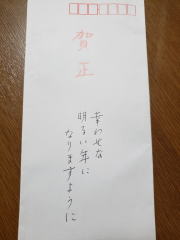 賀正
幸わせな
明るい年に
なりますように